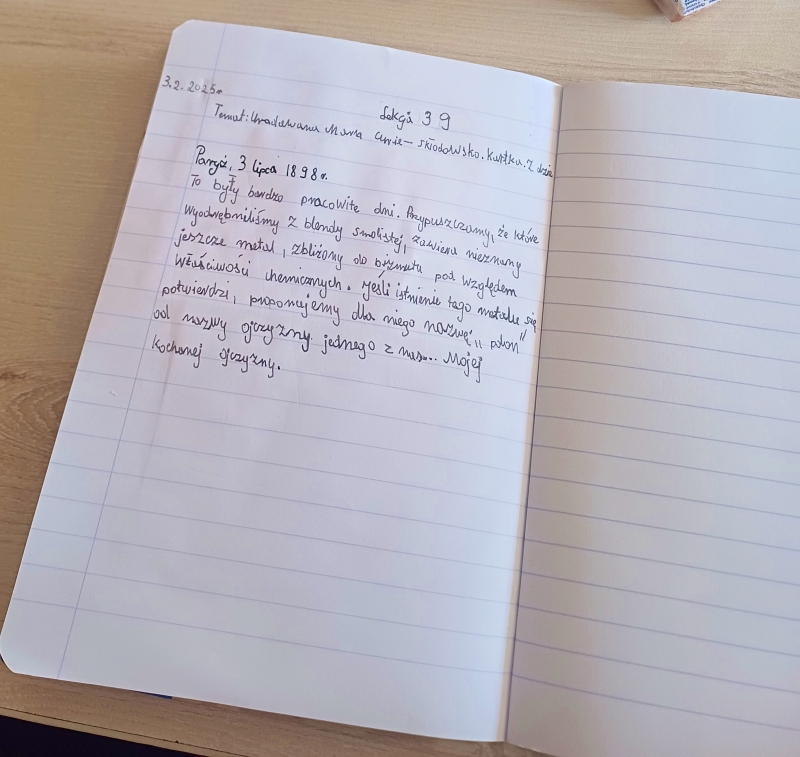 3.2.2025r.
Lekcja 39
Temat: Uradowana Maria Curie-Skłodowska. Kartka. Z dzie
Paryż, 3 lipca 1898r.
To były bardzo pracowite dni. Przypuszczamy, że które
wyodrębniliśmy z blendy smolistej, zawiera nieznany
jeszcze metal, zbliżony do bizmutu pod względem
właściwości chemicznych. Jeśli istnienie tego metalu się
potwierdzi, proponujemy dla niego nazwę "polon"
od nazwy ojczyzny jednego z nas... Mojej
kochanej ojczyzny.